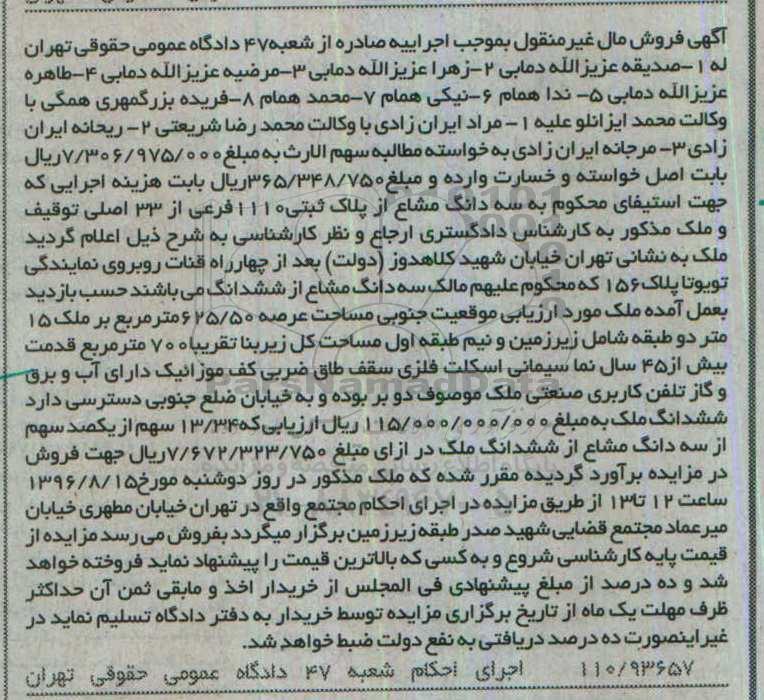 آگهی فروش مال غیرمنقول بموجب اجراییه صادره از شعبه۴۷ دادگاه عمومی حقوقی تهران
له ۱-صدیقه عزیزالله دمابی ۲-زهرا عزیزالله دمابی ۳-مرضیه عزیزالله دمابی ۴-طاهره
عزیزالله دمابی ۵- ندا همام ۶-نیکی همام ۷-محمد همام ۸-فریده بزرگمهری همگی با
وکالت محمد ایزانلو علیه ۱- مراد ایران زادی با وکالت محمد رضا شریعتی ۲- ریحانه ایران
زادی۳- مرجانه ایران زادی به خواسته مطالبه سهم الارث به مبلغ۷/۳۰۶/۹۷۵/۰۰۰ریال
بابت اصل خواسته و خسارت وارده و مبلغ۳۶۵/۳۴۸/۷۵۰ریال بابت هزینه اجرایی که
جهت استیفای محکوم به سه دانگ مشاع از پلاک ثبتی۱۱۱۰فرعی از ۳۳ اصلی توقیف
و ملک مذکور به کارشناس دادگستری ارجاع و نظر کارشناسی به شرح ذیل اعلام گردید
ملک به نشانی تهران خیابان شهید کلاهدوز (دولت) بعد از چهارراه قنات روبروی نمایندگی
تویوتا پلاک۱۵۶ که محکوم علیهم مالک سه دانگ مشاع از ششدانگ می باشند حسب بازدید
بعمل آمده ملک مورد ارزیابی موقعیت جنوبی مساحت عرصه ۶۲۵/۵۰مترمربع بر ملک ۱۵
متر دو طبقه شامل زیرزمین و نیم طبقه اول مساحت کل زیربنا تقریبا ۷۰۰ مترمربع قدمت
بیش از۴۵ سال نما سیمانی اسکلت فلزی سقف طاق ضربی کف موزائیک دارای آب و برق
و گاز تلفن کاربری صنعتی ملک موصوف دو بر بوده و به خیابان ضلع جنوبی دسترسی دارد
ششدانگ ملک به مبلغ ۱۱۵/۰۰۰/۰۰۰/۰۰۰ ریال ارزیابی که۱۳/۳۴ سهم از یکصد سهم
از سه دانگ مشاع از ششدانگ ملک در ازای مبلغ ۷/۶۷۲/۳۲۳/۷۵۰ریال جهت فروش
در مزایده برآورد گردیده مقرر شده که ملک مذکور در روز دوشنبه مورخ۱۳۹۶/۸/۱۵
ساعت ۱۲ تا۱۳ از طریق مزایده در اجرای احکام مجتمع واقع در تهران خیابان مطهری خیابان
میرعماد مجتمع قضایی شهید صدر طبقه زیرزمین برگزار میگردد بفروش می رسد مزایده از
قیمت پایه کارشناسی شروع و به کسی که بالاترین قیمت را پیشنهاد نماید فروخته خواهد
شد و ده درصد از مبلغ پیشنهادی فی المجلس از خریدار اخذ و مابقی ثمن آن حداکثر
ظرف مهلت یک ماه از تاریخ برگزاری مزایده توسط خریدار به دفتر دادگاه تسلیم نماید در
غیراینصورت ده درصد دریافتی به نفع دولت ضبط خواهد شد.
۱۱۰/۹۳۶۵۷ اجرای احکام شعبه ۴۷ دادگاه عمومی حقوقی تهران
ParsNamadData